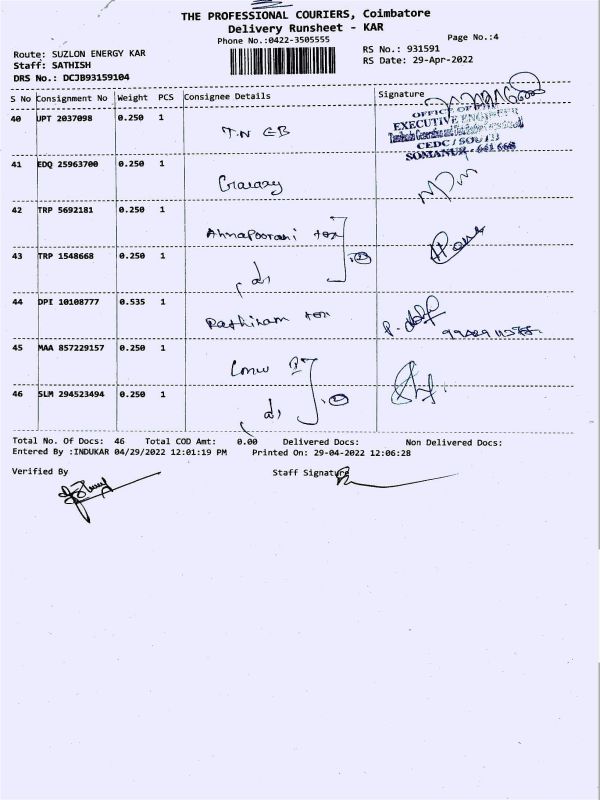 THE PROFESSIONAL COURIERS, Coimbatore
Delivery Runsheet - KAR
Phone No.:0422-3505555
Page No.:4
Route: SUZLON ENERGY KAR
Staff: SATHISH
DRS No.: DCJB93159104
RS No.: 931591
RS Date: 29-Apr-2022
S No Consignment No Weight PCS Consignee Details Signature
40 UPT 2037098 0.250 1 T.N EB
OFFICE OF THE
EXECUTIVE ENGINEER
CEDC / SOUTH
SOMANUR - 641 668
41 EDQ 25963700 0.250 1
42 TRP 5692181 0.250 1 Annapoorani tex
43 TRP 1548668 0.250 1
44 DPI 10108777 0.535 1 Rathinam tex
45 MAA 857229157 0.250 1
46 SLM 294523494 0.250 1
Total No. Of Docs: 46 Total COD Amt: 0.00 Delivered Docs: Non Delivered Docs:
Entered By :INDUKAR 04/29/2022 12:01:19 PM Printed On: 29-04-2022 12:06:28
Verified By Staff Signature